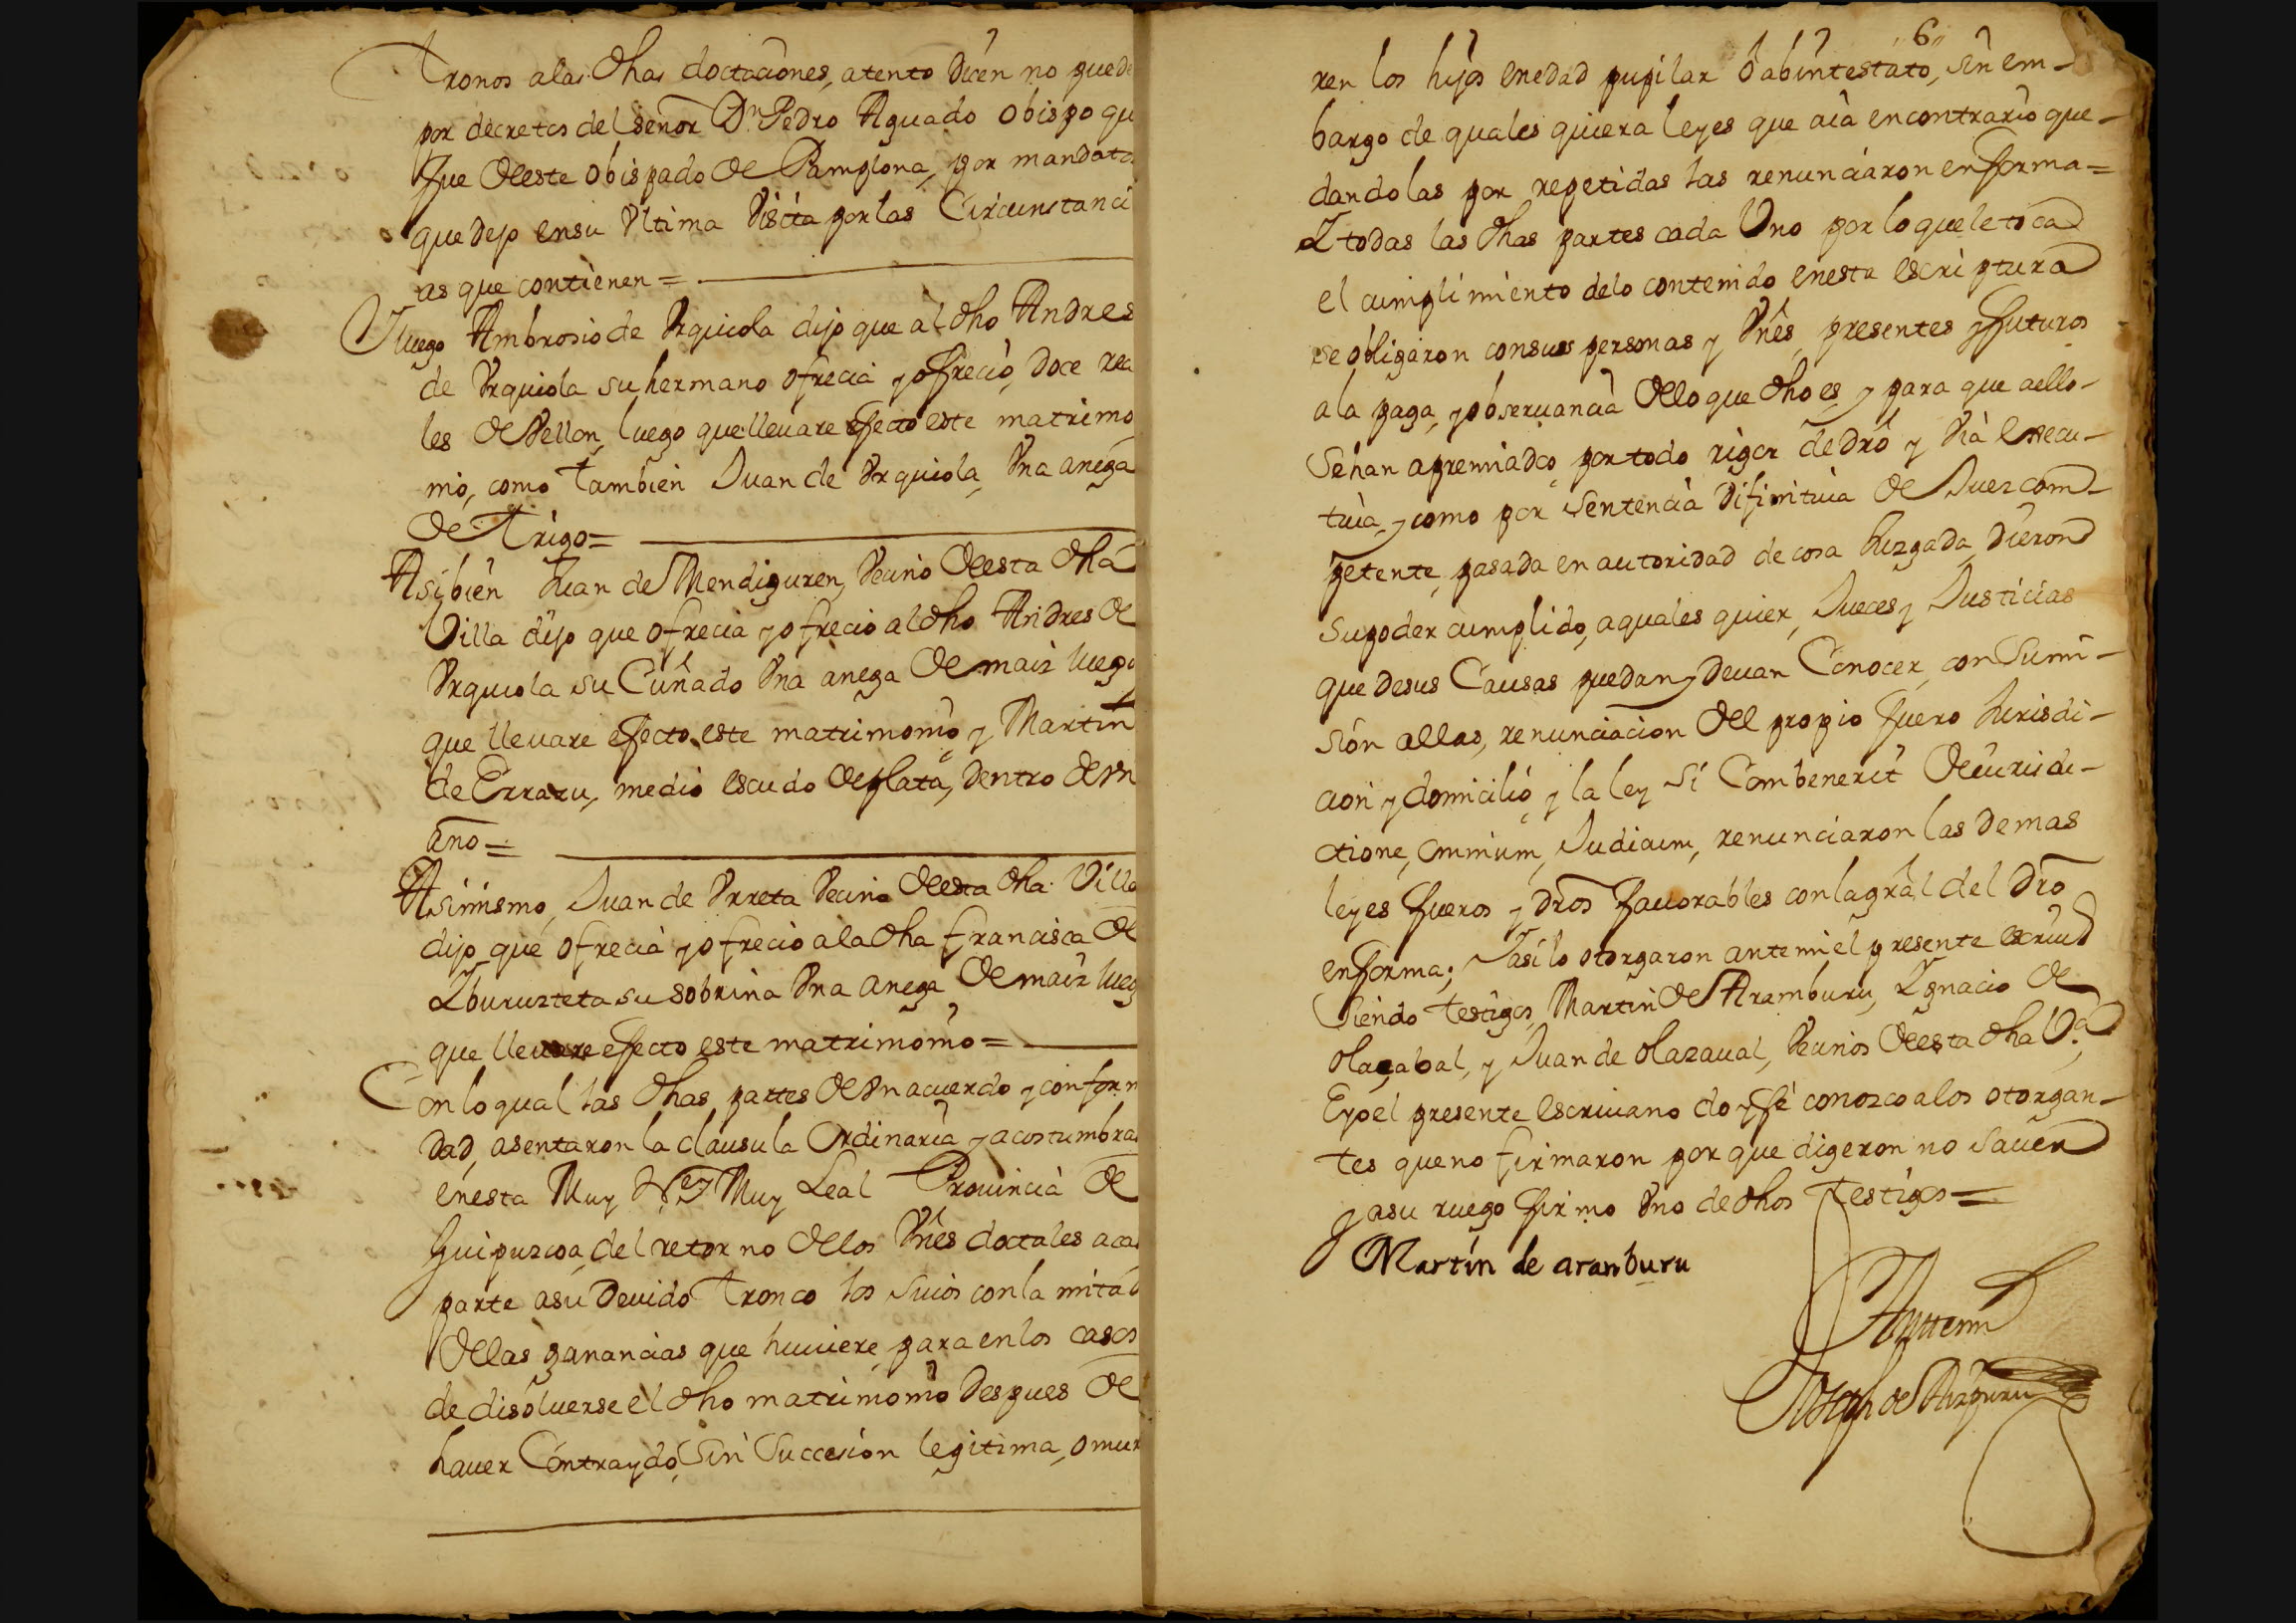 Tronos alas dhas doctaciones, atento dicen no puede
por decretos del señor Dn Pedro Aguado obispo qu
fue deeste obispado de Pamplona, por mandato
que dejo ensu Vltima Viscita por las Circunstanci
as que contienen =
Yluego Ambrosio de Vrquiola dijo que al dho Andres
de Vrquiola su hermano ofrecia y ofrecio, doce rea
les de Vellon, luego que lleuare efecto este matrimo
nio, como tambien Juan de Vrquiola, Vna anega
de Trigo =
Asibien Juan de Mendiguren, Vecino deesta dha
Villa dijo que ofrecia y ofrecio al dho Andres de
Vrquiola su Cuñado Vna anega de maiz luego
que lleuare efecto este matrimonio, y Martin
de Erraru, medio escudo de plata, dentro de vn
año =
Asimismo, Juan de Vrreta Vecino deesta dha Villa
dijo que ofrecia y ofrecio ala dha francisca de
Yburuzteta su sobrina Vna anega de maiz lueg
que lleuare efecto este matrimonio =
Con lo qual las dhas partes de vn acuerdo y conform
dad, asentaron la clausula Ordinaria y acostumbra
enesta Muy N. Y Muy Leal Prouincia de
Guipuzcoa, del retorno delos Vnês doctales aca
parte asu Deuido Tronco los Suios con la mitad
delas ganancias que huuiere, para en los casos
de disoluerse el dho matrimonio despues de
hauer Contraydo, Sin Succesion legitima, o mur
6
ren los hijos enedad pupilar o abintestato, sin em-
bargo de quales quiera leyes que aia encontrario que-
dandolas por repetidas las renunciaron enforma =
Y todas las dhas partes cada Vno por lo que le toca
el cumplimiento delo contenido enesta escriptura
se obligaron consus personas y Vnês, presentes y futuros
ala paga, y obseruancia delo que dho es, y para que aello-
Sehan apremiados, por todo rigor de dro y Via Execu-
tiua, y como por Sentencia Difinitiua de Juez com-
petente, pasada en autoridad de cosa Juzgada, dieron
su poder cumplido, aquales quier, Jueces y Justicias
que desus Causas puedan y deuan Conocer, con Sumi-
sion allas, renunciacion del propio fuero Jurisdi-
cion y domicilio, y la ley Si Combenerit deiurisdi-
ctione, omnium, Judicum, renunciaron las demas
leyes fueros y dros fauorables conla gral del Dro
enforma; Yasi lo otorgaron ante mi el presente escriuo
Siendo testigos, Martin de Aramburu, Ygnacio de
olaçabal, y Juan de olazaual, Vecinos deesta dha Va.
Eyo el presente escriuano doy fe conozco alos otorgan-
tes que no firmaron por que digeron no Sauer
y asu ruego firmo Vno de dhos Testigos =
Martin de aramburu
Antemi
Joseph de